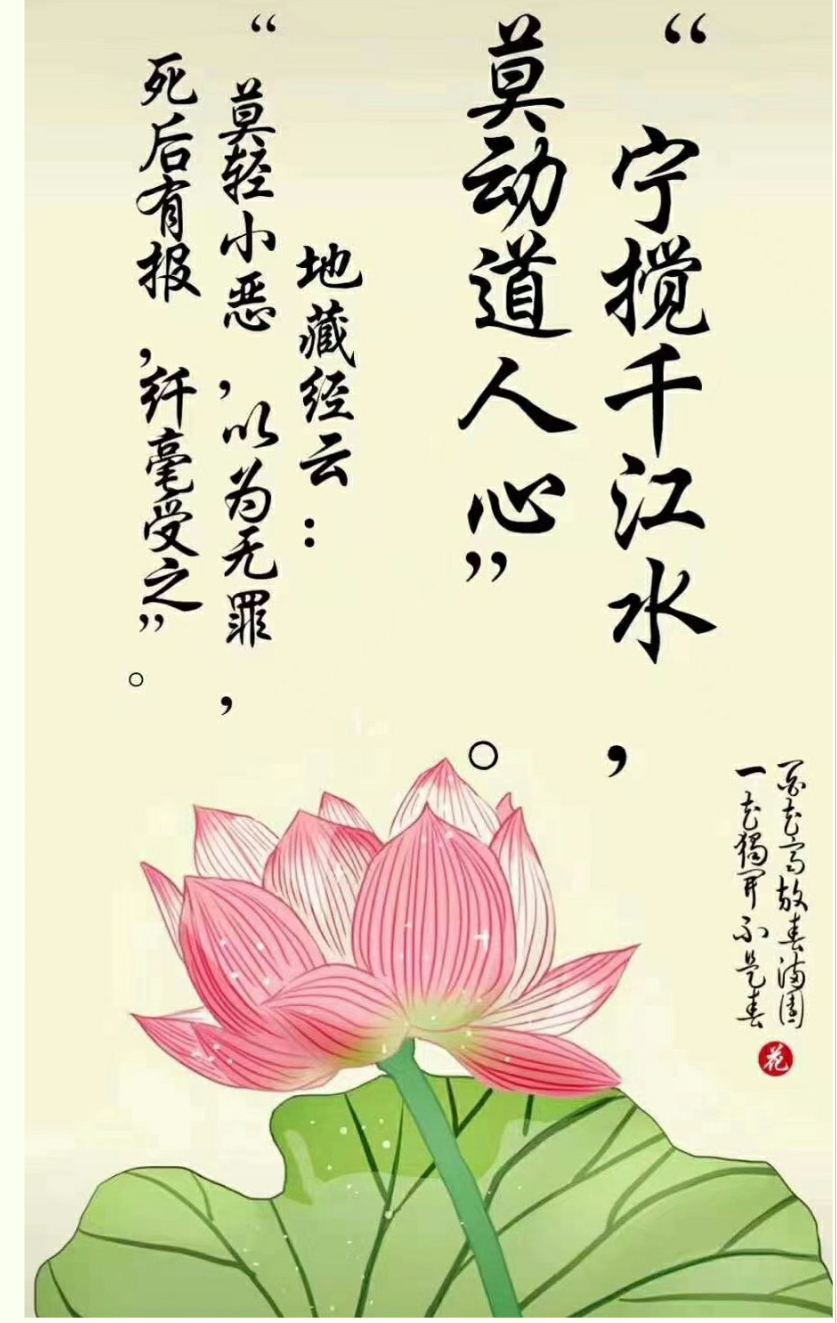 “宁搅千江水，
莫动道人心”。
地藏经云：
“莫轻小恶，以为无罪，
死后有报，纤毫受之”。
百花齐放春满园
一花独开不是春
花